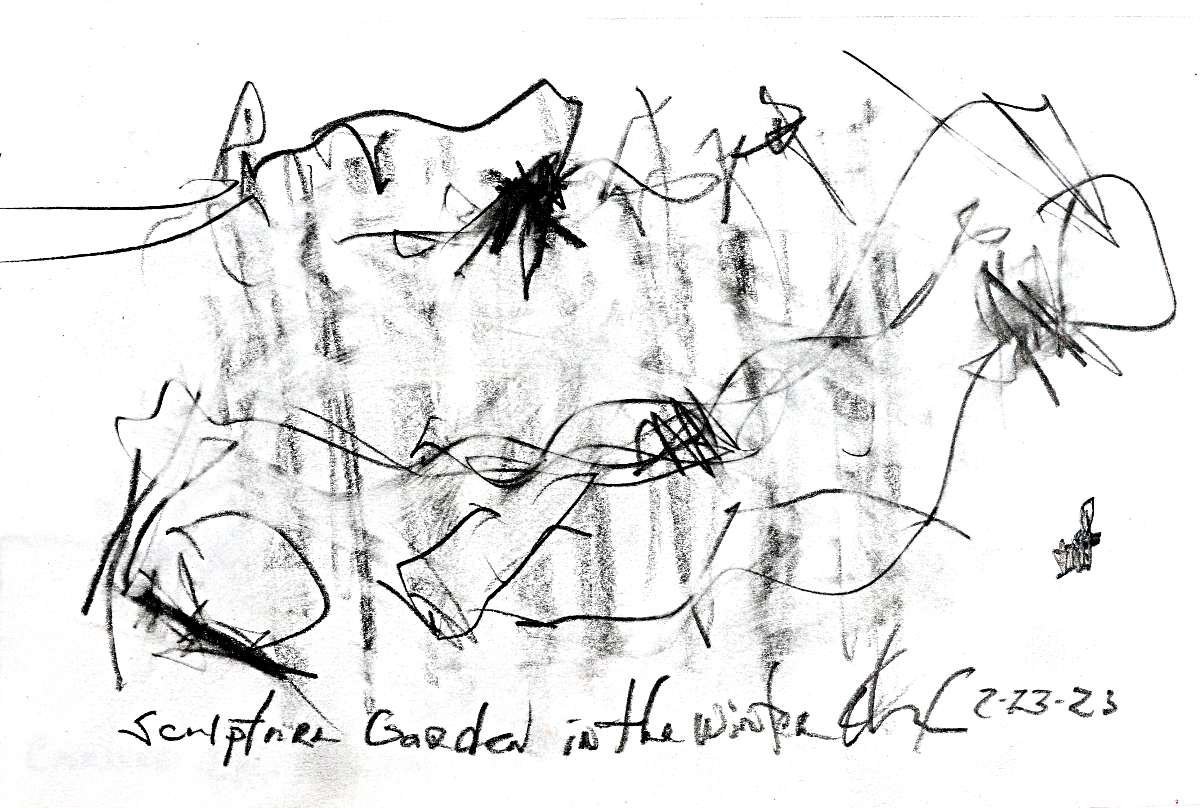 Sculpture Garden in the Winter 2-23-23